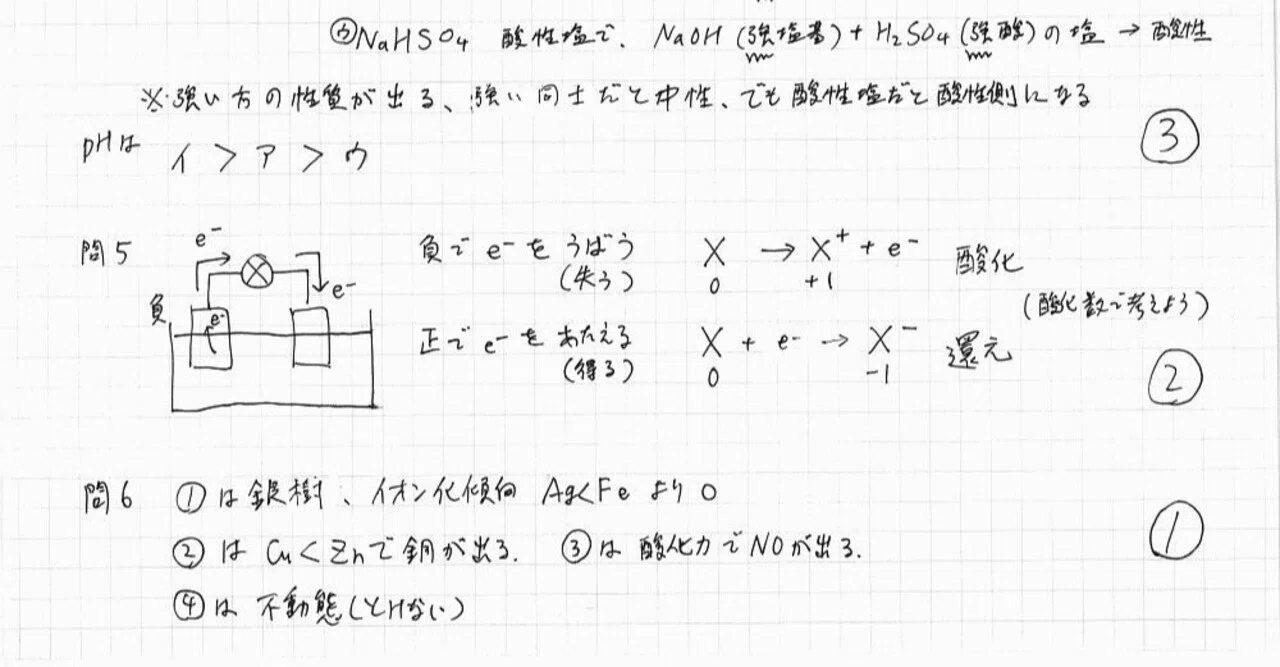 ㋒NaHSO4 酸性塩で、NaOH(強塩基)+H2SO4(強酸)の塩 → 酸性
※強い方の性質が出る、強い同士だと中性、でも酸性塩だと酸性側になる
pHは イ > ア > ウ
③
問5
e⁻
e⁻
負
e⁻
負で e⁻を うばう X → X⁺ + e⁻ 酸化
(失う) 0 +1
(酸化数で考えよう)
正で e⁻を あたえる X + e⁻ → X⁻ 還元
(得る) 0 -1
②
問6 ①は銀樹、イオン化傾向 Ag<Fe より 0
②は Cu<Znで銅が出る. ③は 酸化力でNOが出る.
①
④は 不動態(とけない)